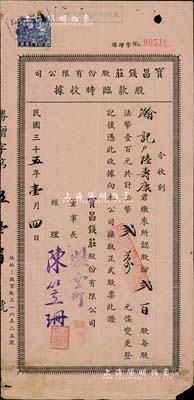 No. 00510
寶昌錢莊股份有限公司
股款臨時收據
今收到
瀚記戶陸壽康君繳來所認股份貳百股每股
法幣壹百元共計法幣貳萬元俟變更登
記後憑此收據向本公司換取正式股票此證
寶昌錢莊股份有限公司
董事長
經理 陳笠珊
民國三十五年壹月四日